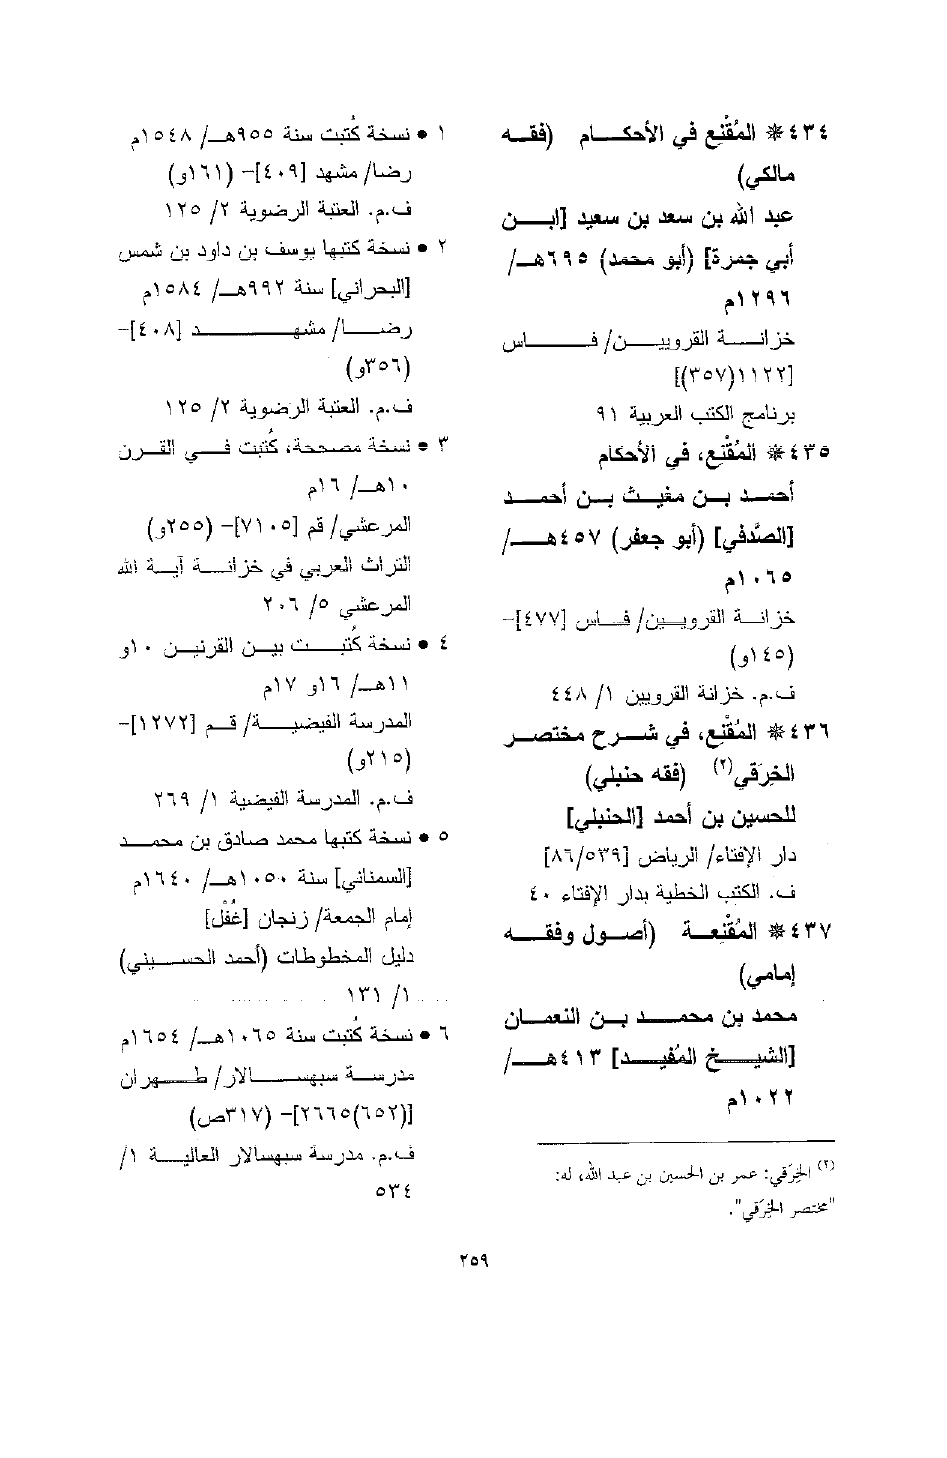 ٤٣٤ * المُقْنِع في الأحكام (فقه
مالكي)
عبد الله بن سعد بن سعيد [ابن
أبي جمرة] (أبو محمد) ٦٩٥هـ/
١٢٩٦م
خزانة القرويين/ فاس
[١١٢٢(٣٥٧)]
برنامج الكتب العربية ٩١
٤٣٥ * المُقْنِع، في الأحكام
أحمد بن مغيث بن أحمد
[الصَّدفي] (أبو جعفر) ٤٥٧هـ/
١٠٦٥م
خزانة القرويين/ فاس [٤٧٧]–
(١٤٥و)
ف.م. خزانة القرويين ١/ ٤٤٨
٤٣٦ * المُقْنِع، في شرح مختصر
الخِرَقي(٢) (فقه حنبلي)
للحسين بن أحمد [الحنبلي]
دار الإفتاء/ الرياض [٨٦/٥٣٩]
ف. الكتب الخطية بدار الإفتاء ٤٠
٤٣٧ * المُقْنِعة (أصول وفقه
إمامي)
محمد بن محمد بن النعمان
[الشيخ المُفيد] ٤١٣هـ/
١٠٢٢م
(٢) الخِرَقي: عمر بن الحسين بن عبد الله، له:
"مختصر الخِرَقي".
١ • نسخة كُتبت سنة ٩٥٥هـ/ ١٥٤٨م
رضا/ مشهد [٤٠٩]– (١٦١و)
ف.م. العتبة الرضوية ٢/ ١٢٥
٢ • نسخة كتبها يوسف بن داود بن شمس
[البحراني] سنة ٩٩٢هـ/ ١٥٨٤م
رضا/ مشهد [٤٠٨]–
(٣٥٦و)
ف.م. العتبة الرضوية ٢/ ١٢٥
٣ • نسخة مصححة، كُتبت في القرن
١٠هـ/ ١٦م
المرعشي/ قم [٧١٠٥]– (٢٥٥و)
التراث العربي في خزانة آية الله
المرعشي ٥/ ٢٠٦
٤ • نسخة كُتبت بين القرنين ١٠و
١١هـ/ ١٦و ١٧م
المدرسة الفيضية/ قم [١٢٧٢]–
(٢١٥و)
ف.م. المدرسة الفيضية ١/ ٢٦٩
٥ • نسخة كتبها محمد صادق بن محمد
[السمناني] سنة ١٠٥٠هـ/ ١٦٤٠م
إمام الجمعة/ زنجان [غُفْل]
دليل المخطوطات (أحمد الحسيني)
١/ ١٣١
٦ • نسخة كُتبت سنة ١٠٦٥هـ/ ١٦٥٤م
مدرسة سبهسالار/ طهران
[(٦٥٢)٢٦٦٥]– (٣١٧ص)
ف.م. مدرسة سبهسالار العالية ١/
٥٣٤
٢٥٩